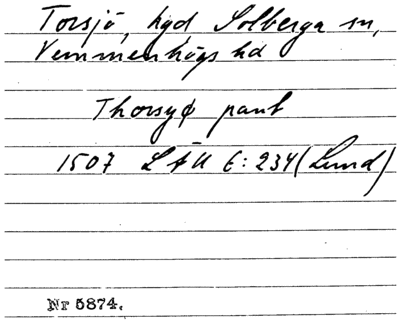 Torsjö, hgd Solberga sn,
Vemmenhögs hd
Thorsyø pant
1507 LÄU 6:234 (Lund)
Nr 5874.